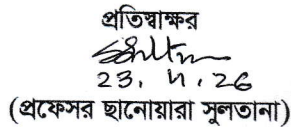 প্রতিস্বাক্ষর
23. 11. 26
(প্রফেসর ছানোয়ারা সুলতানা)